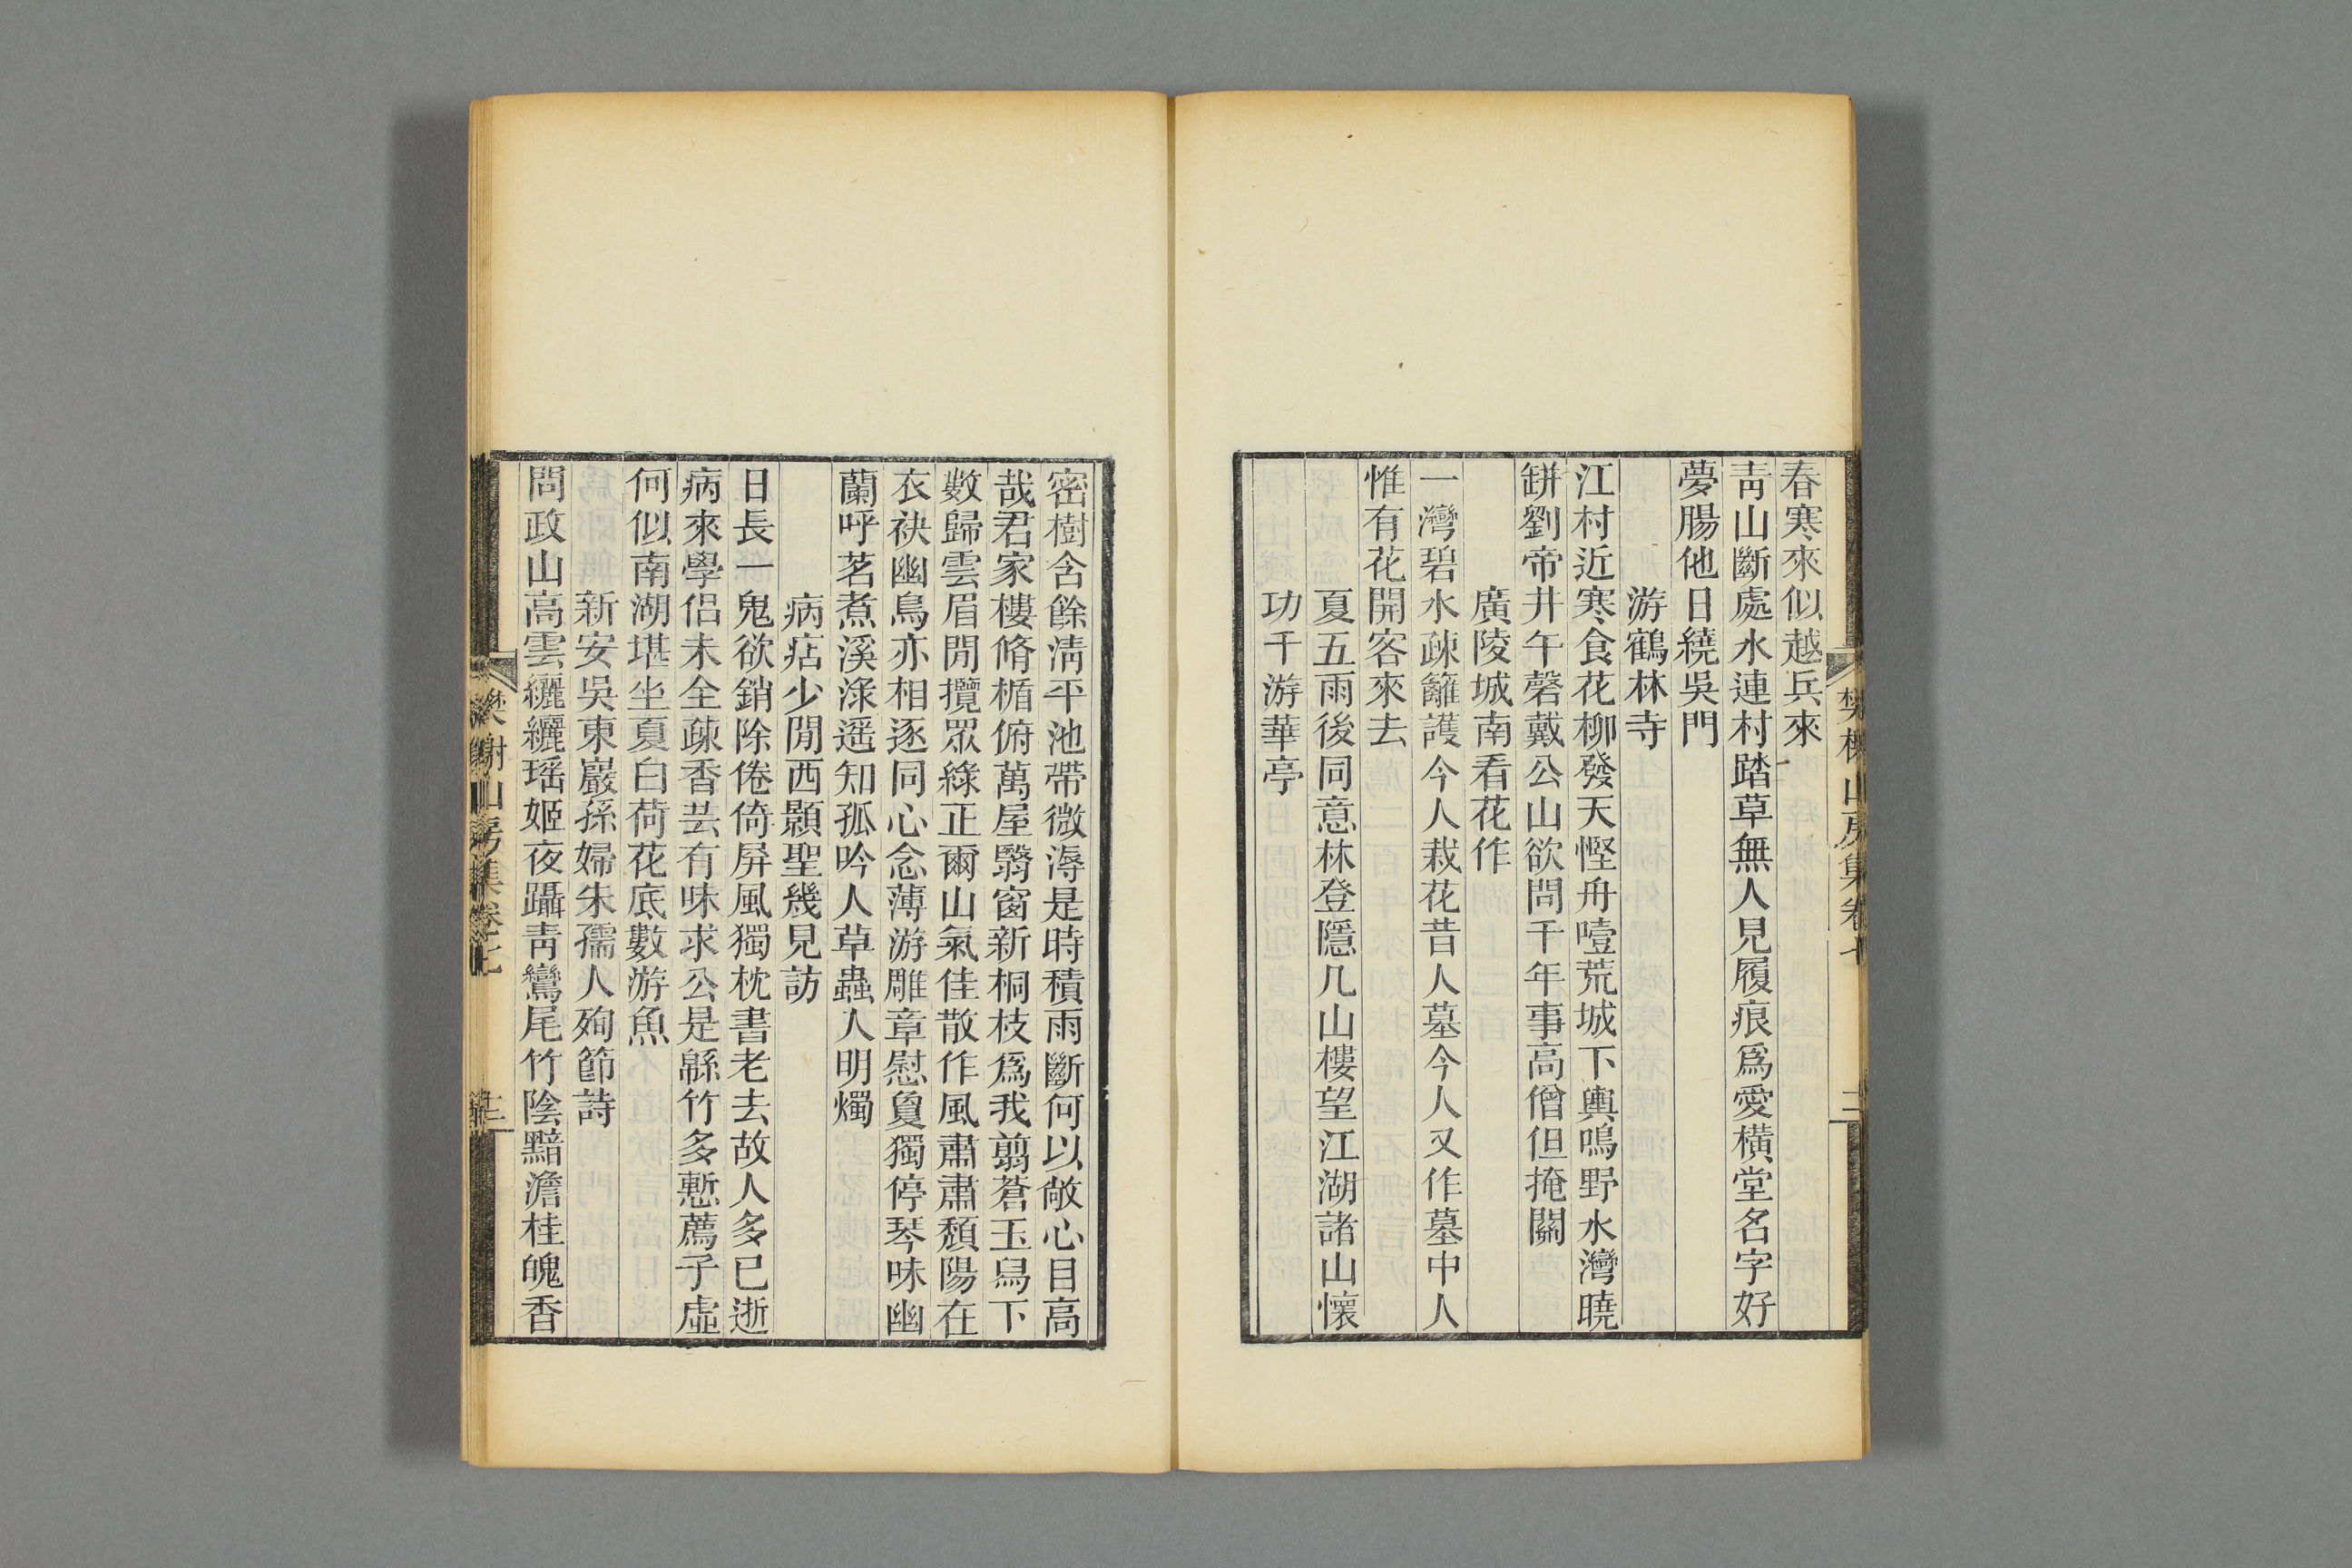 春寒來似越兵來
靑山斷處水連村踏草無人見履痕爲愛橫堂名字好
夢腸他日繞吳門
游鶴林寺
江村近寒食花柳發天慳舟噎荒城下輿鳴野水灣曉
缾劉帝井午磬戴公山欲問千年事高僧但掩關
廣陵城南看花作
一灣碧水疎籬護今人栽花昔人墓今人又作墓中人
惟有花開客來去
夏五雨後同意林登隱几山樓望江湖諸山懷
功千游華亭
密樹含餘淸平池帶微潯是時積雨斷何以敞心目高
哉君家樓脩楯俯萬屋翳窗新桐枝爲我翦蒼玉舄下
數歸雲眉閒攬眾綠正爾山氣佳散作風肅肅頹陽在
衣袂幽鳥亦相逐同心念薄游雕章慰敻獨停琴味幽
蘭呼茗煮溪淥遥知孤吟人草蟲人明燭
病痁少閒西顥聖幾見訪
日長一鬼欲銷除倦倚屏風獨枕書老去故人多已逝
病來學侶未全疎香芸有味求公是緜竹多慙薦子虛
何似南湖堪坐夏白荷花底數游魚
新安吳東巖孫婦朱孺人殉節詩
問政山高雲纚纚瑤姬夜躡靑鸞尾竹陰黯澹桂魄香
樊榭山房集卷七
三